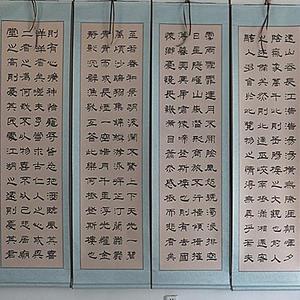 遠山吞長江浩浩湯湯橫無際涯朝暉夕
陰氣象萬千此則岳陽樓之大觀也前人
之述備矣然則北通巫峽南極瀟湘遷客
騷人多會於此覽物之情得無異乎若夫
霪雨霏霏連月不開陰風怒號濁浪排空
日星隱曜山岳潛形商旅不行檣傾楫摧
薄暮冥冥虎嘯猿啼登斯樓也則有去國
懷鄉憂讒畏譏滿目蕭然感極而悲者矣
至若春和景明波瀾不驚上下天光一碧
萬頃沙鷗翔集錦鱗游泳岸芷汀蘭郁郁
青青而或長煙一空皓月千里浮光耀金
靜影沉璧漁歌互答此樂何極登斯樓也
則有心曠神怡寵辱皆忘把酒臨風其喜
洋洋者矣嗟夫予嘗求古仁人之心或異
二者之為何哉不以物喜不以己悲居廟
堂之高則憂其民處江湖之遠則憂其君